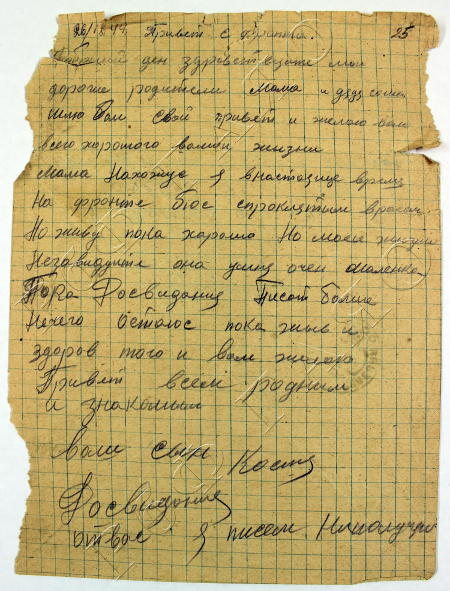 26/IX 44 Привет с фронта. 25
ден здравствуйте мои
дорогие родители Мама и
шлю Вам свой привет и желаю вам
всего хорошого вашей жизни
Мама Нахожус я внастоящие время
На фронте бюс спроклятым врагом.
Но живу пока хорошо Но моей жизни
Незавидуйте она умня очен маленка
Пора Досвидания Писат болше
Нечего Остаюс пока жыв и
здоров того и вам желаю
Привет всем родным
и знакомым
ваш сын Костя
Досвидания
отвас я писем Неполучаю